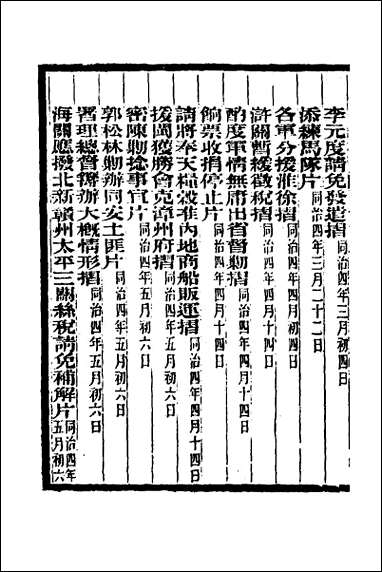 李元度請免發遣摺 同治四年三月初四日
添練馬隊片 同治四年三月二十二日
各軍分援淮徐摺 同治四年四月初四日
滸關暫緩徵稅摺 同治四年四月十四日
酌度軍情無庸出省督勦摺 同治四年四月十四日
餉票收捐停止片 同治四年四月十四日
請將奉天糧穀准內地商船販運摺 同治四年四月十四日
援閩獲勝會克漳州府摺 同治四年五月初六日
密陳勦捻事宜片 同治四年五月初六日
郭松林勦辦同安土匪片 同治四年五月初六日
署理總督籌辦大概情形摺 同治四年五月初六日
海關應撥北新贛州太平三關絲稅請免補解片 同治四年五月初六